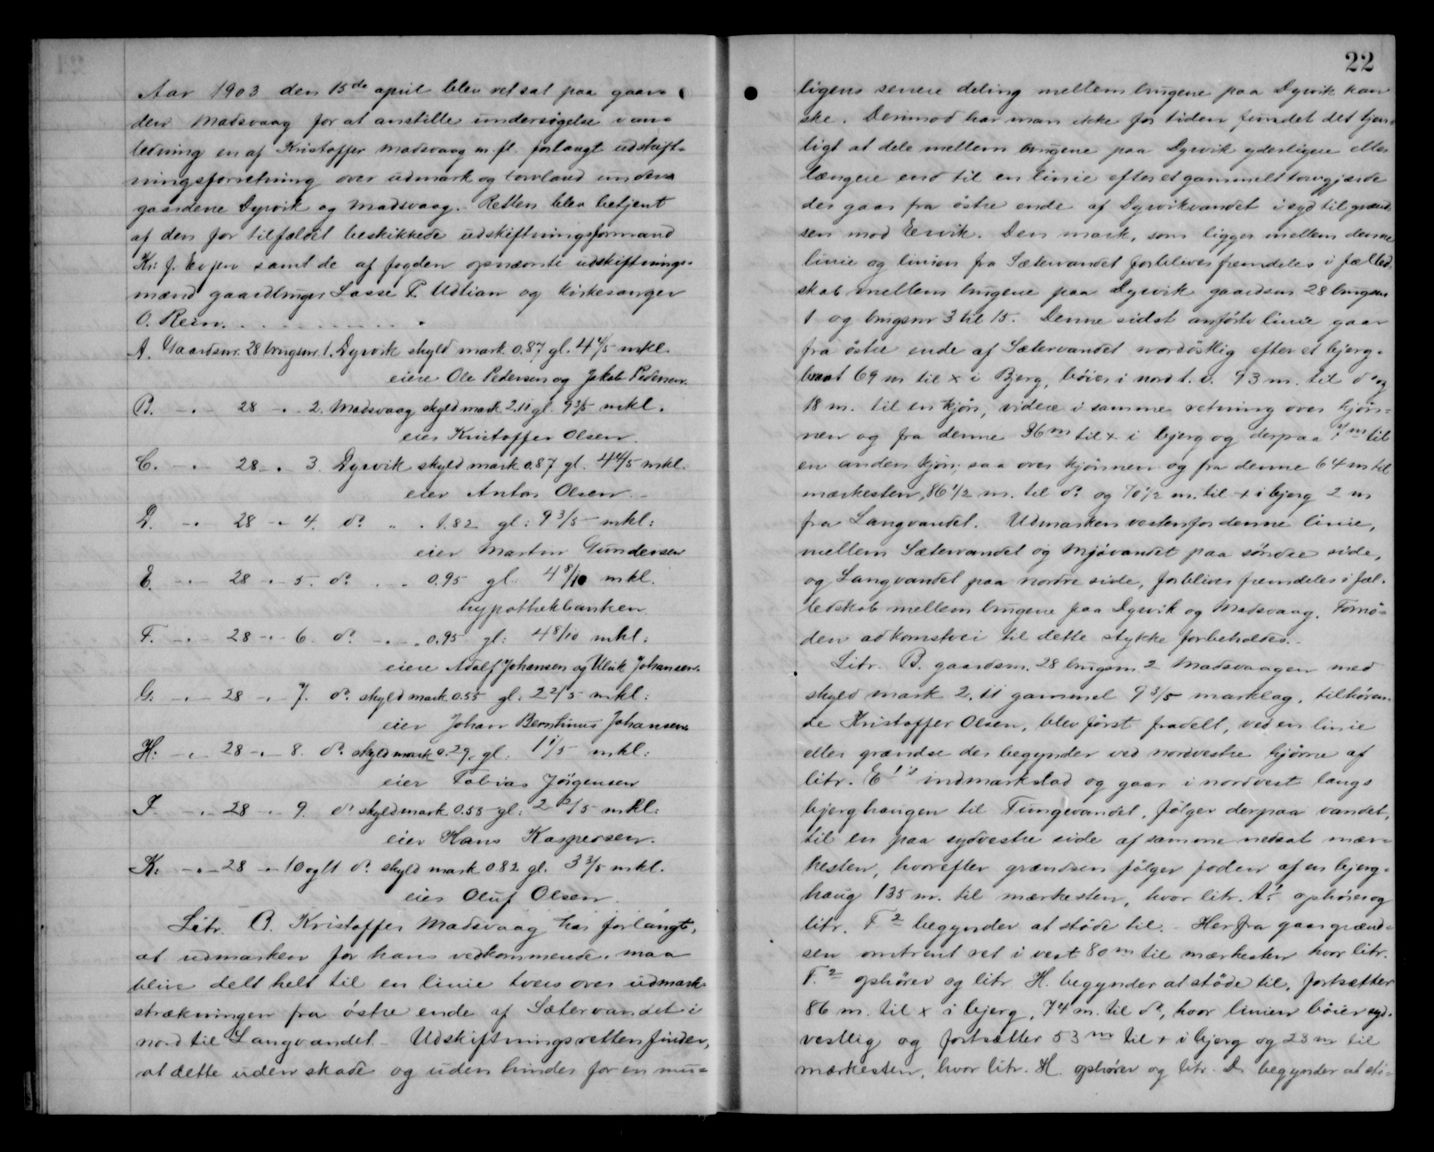 Aar 1903 den 15de april blev ret sat paa gaar-
den Madsvaag for at anstille undersøgelse i an-
ledning en af Kristoffer Madsvaag m. fl. forlangt udskift-
ningsforretning over udmark og torvland under
gaardene Dyrvik og Madsvaag. Retten blev betjent
af den for tilfældet beskikkede udskiftningsformand
Kr: J. Evjen samt de af fogden opnævnte udskiftnings-
mænd gaardbruger Lasse P. Udlian og kirkesanger
O. Rein.
A. Gaardsnr. 28 brugsnr. 1. Dyrvik skyld mark 0.87 gl. 4 4/5 mkl.
eiere Ole Pedersen og Jakob Pedersen.
B. -"- 28 -"- 2. Madsvaag skyld mark 2.11 gl. 9 3/5 mkl.
eier Kristoffer Olsen.
C. -"- 28 -"- 3 Dyrvik skyld mark 0.87 gl. 4 4/5 mkl.
eier Anton Olsen.
D. -"- 28 -"- 4. do " " 1.82 gl: 9 3/5 mkl:
eier Martin Gundersen
E. -"- 28 -"- 5. do " " 0.95 gl. 4 8/10 mkl.
hypothekbanken
F. -"- 28 -"- 6. do -"- 0.95 gl: 4 8/10 mkl:
eiere Adolf Johansen og Ulrik Johansen.
G. -"- 28 -"- 7. do skyld mark 0.55 gl: 2 2/5 mkl:
eier Johan Bernthinus Johansen
H: -"- 28 -"- 8. do skyld mark 0.29. gl. 1 1/5 mkl:
eier Tobias Jørgensen
I. -"- 28 -"- 9. do skyld mark 0.53 gl: 2 2/5 mkl:
eier Hans Kaspersen.
K: -"- 28 -"- 10 og 11 do skyld mark 0.82 gl. 3 3/5 mkl.
eier Oluf Olsen.
Litr. B. Kristoffer Madsvaag har forlangt,
at udmarken for hans vedkommende, maa
blive delt helt til en linie tvers over udmark-
strækningen fra østre ende af Sætervandet i
nord til Langvandet. Udskiftningsretten finder,
at dette uden skade og uden hinder for en mu-
22
ligens senere deling mellem brugene paa Dyrvik kan
ske. Derimod har man ikke for tiden fundet det tjen-
ligt at dele mellem brugene paa Dyrvik yderligere eller
længere end til en linie efter et gammelt torvgjærde
der gaar fra østre ende af Dyrvikvandet i syd til grænd-
sen mod Ervik. Den mark, som ligger mellem denne
linie og linien fra Sætervandet forbliver fremdeles i fælled-
skab mellem brugene paa Dyrvik gaardsnr. 28 brugsnr.
1 og brugsnr 3 til 15. Denne sidst anførte linie gaar
fra østre ende af Sætervandet nordøstlig efter et bjerg-
brat 69 m til x i Bjerg, bøier i nord t. v. 93 m. til do og
18 m. til en kjøn, videre i samme retning over kjøn-
nen og fra denne 36 m til x i bjerg og derpaa 7 m til
en anden kjøn, saa over kjønnen og fra denne 64 m til
mærkesten, 86 1/2 m. til do og 70 1/2 m. til x i bjerg 2 m
fra Langvandet. Udmarken vestenfor denne linie,
mellem Sætervandet og Mjøvandet paa søndre side,
og Langvandet paa nordre side, forbliver fremdeles i fæl-
ledskab mellem brugene paa Dyrvik og Madsvaag. Fornø-
den adkomstvei til dette stykke forbeholdes.
Litr. B. gaardsnr. 28 brugsnr. 2 Madsvaagen med
skyld mark 2.11 gammel 9 3/5 marklag, tilhøren-
de Kristoffer Olsen, blev først fradelt, ved en linie
eller grændse der begynder ved nordvestre hjørne af
litr. E1's indmarkslad og gaar i nordvest langs
bjerghaugen til Tungevandet, følger derpaa vandet,
til en paa sydvestre side af samme nedsat mær-
kesten, hvorefter grændsen følger foden af en bjerg-
haug 135 m. til mærkesten, hvor litr. A2 ophører og
litr. F2 begynder at støde til. - Herfra gaar grænd-
sen omtrent ret i vest 80 m til mærkesten hvor litr.
F.2 ophører og litr. H. begynder at støde til, fortsætter
86 m. til x i bjerg, 74 m. til do, hvor linien bøier syd-
vestlig og fortsætter 53 m til x i bjerg og 23 m til
mærkesten, hvor litr. H. ophører og litr. D. begynder at stø-